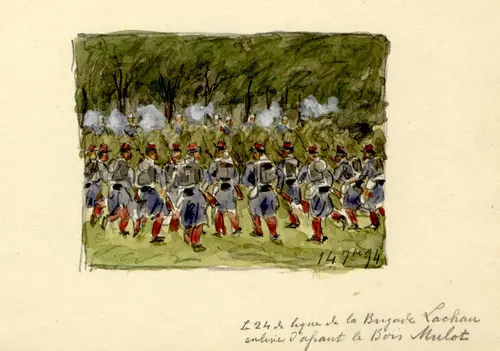 14 7bre 94
Le 24 de ligne de la Brigade Lachau
enlève d'assaut le Bois Mulot